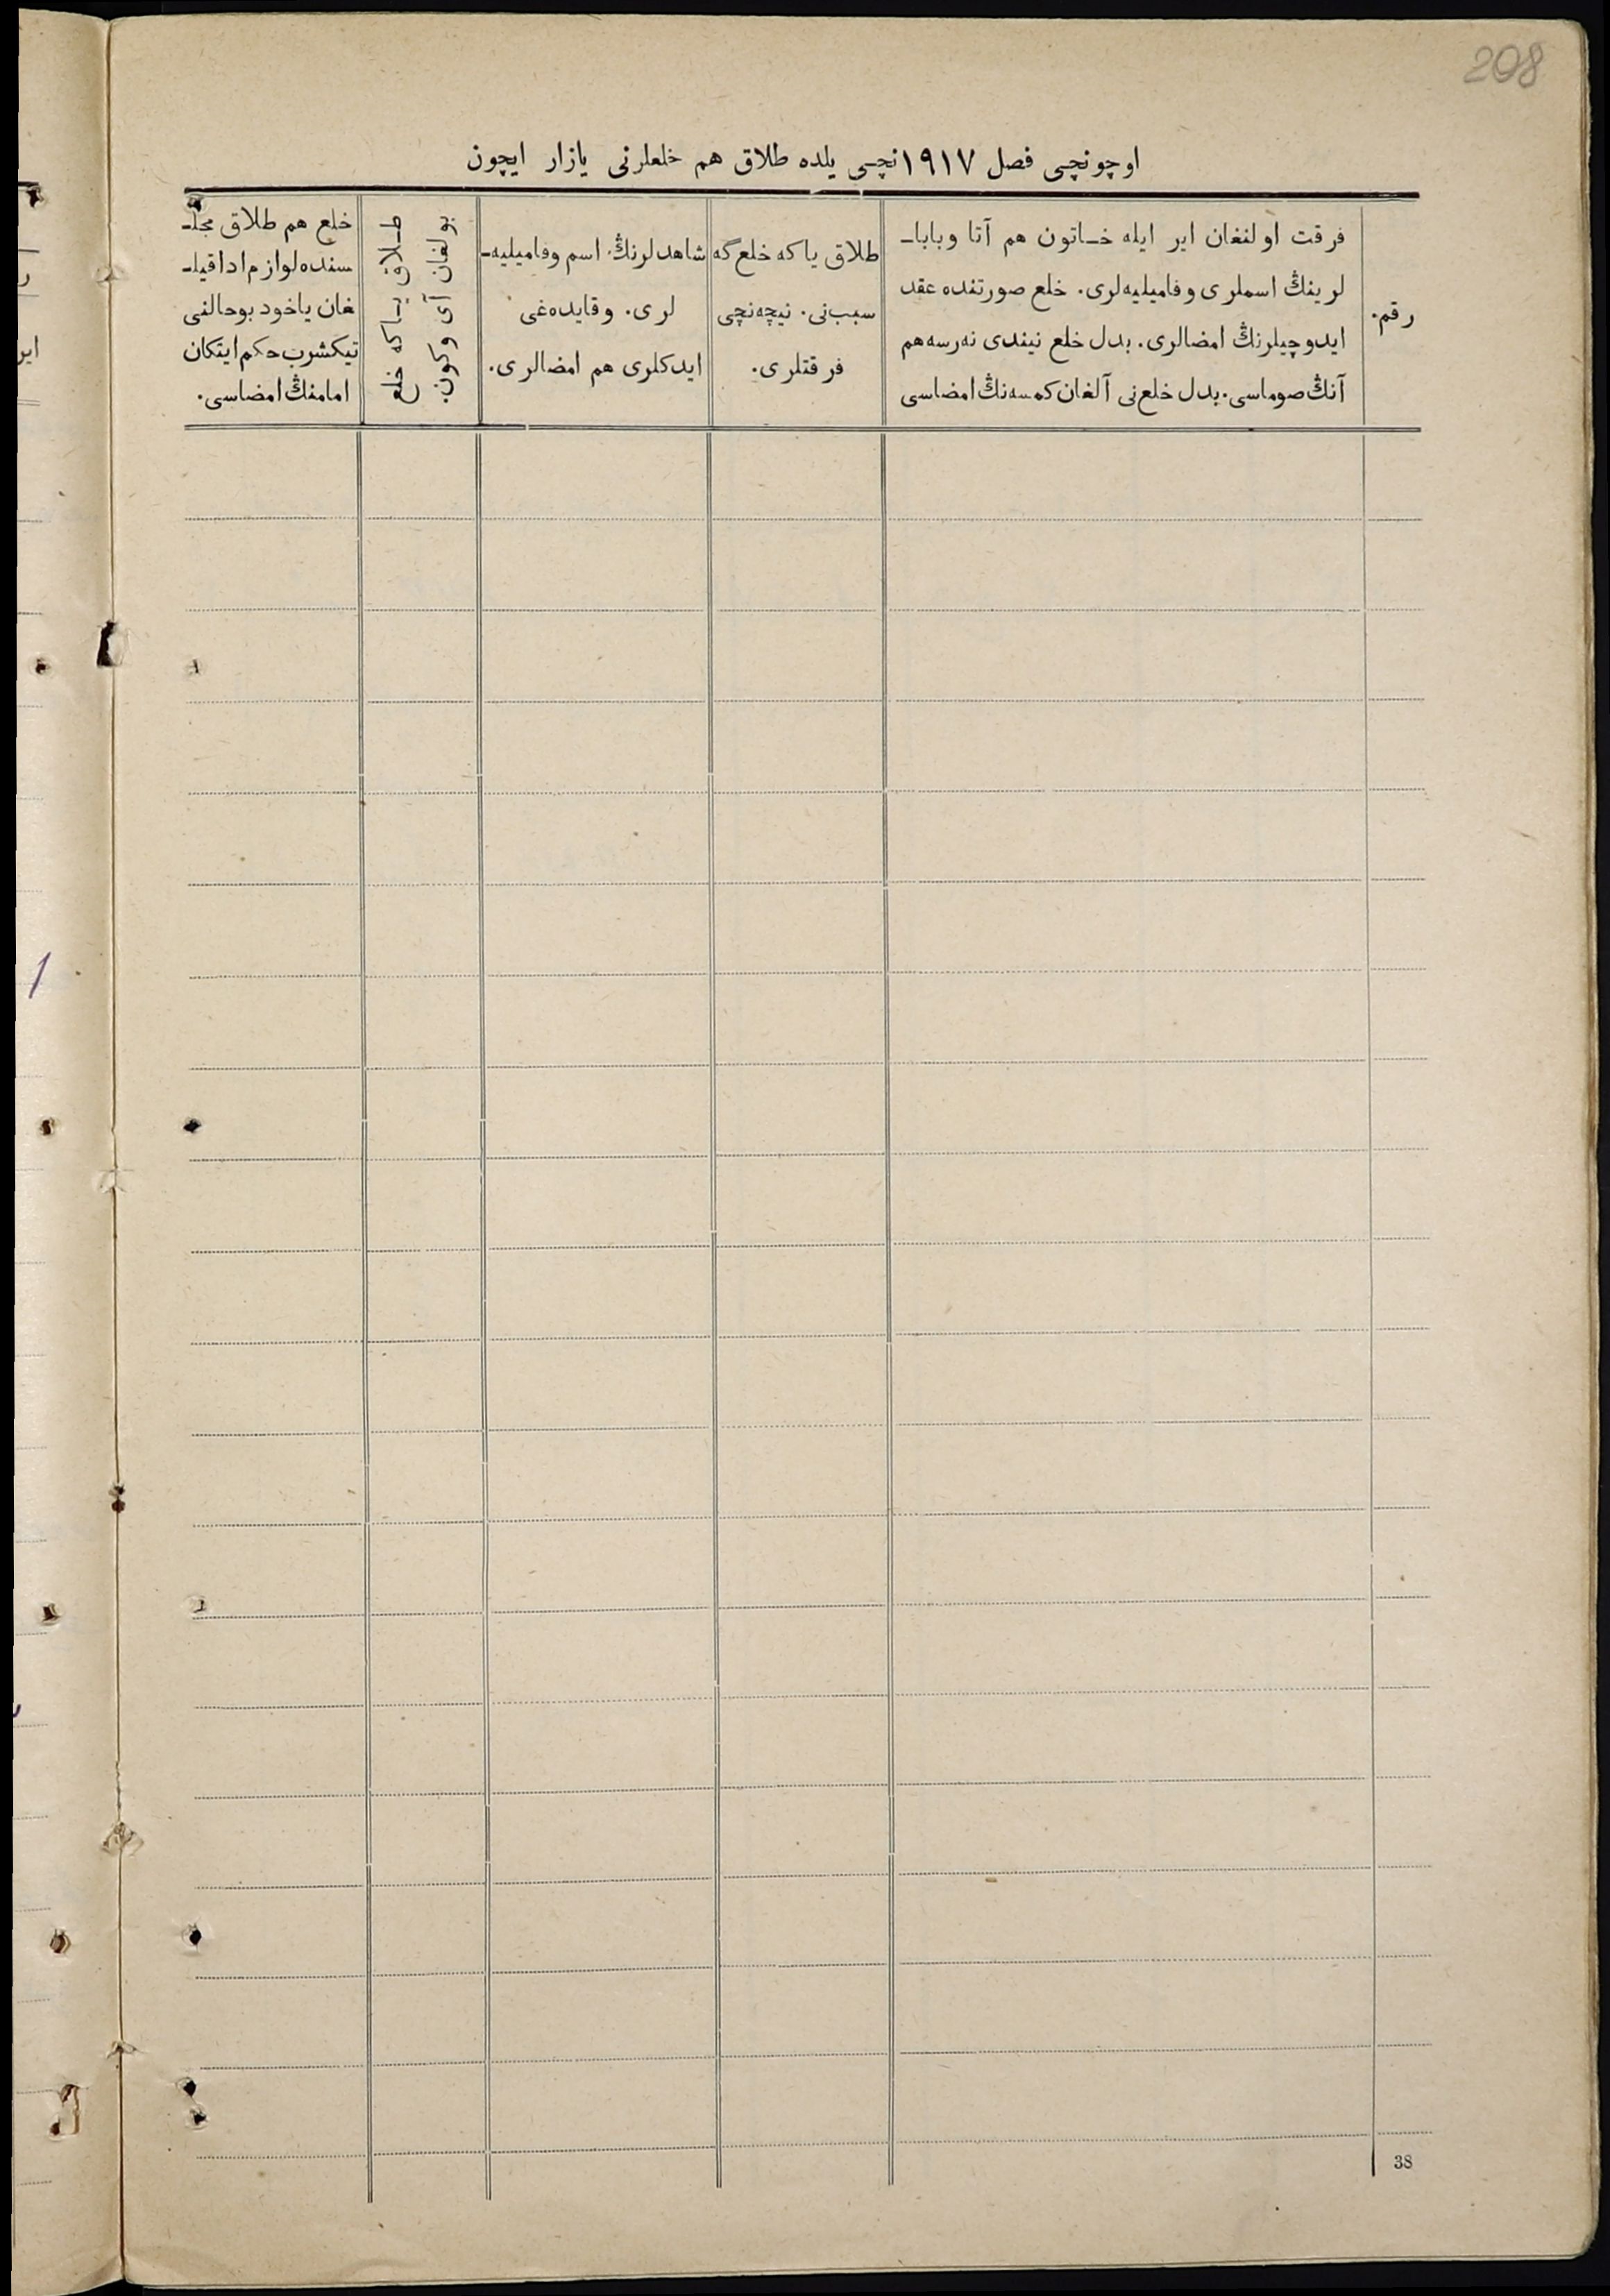 208
اوچونچی فصل ١٩١٧ نچی یلده طلاق هم خلعلرنی یازار ایچون
رقم.
فرقت اولنغان ایر ایله خاتون هم آتا وبابا-
لرینڭ اسملری وفامیلیەلری. خلع صورتنده عقد
ایدوچیلرنڭ امضالری. بدل خلع نیندی نەرسه هم
آنڭ صوماسی. بدل خلع نی آلغان کمسەنڭ امضاسی
طلاق یاکه خلع گه
سبب نی. نیچەنچی
فرقتلری.
شاهدلرنڭ اسم وفامیلیه-
لری. وقایدەغی
ایدکلری هم امضالری.
طلاق یاکه خلع
بولغان آی وکون.
خلع هم طلاق مجل-
سنده لوازم ادا قیل-
غان یاخود بوحالنی
تیکشرب حکم ایتکان
امامنڭ امضاسی.
38